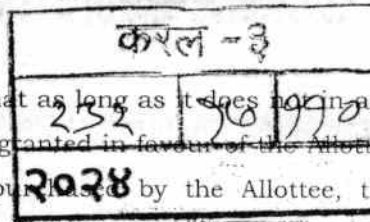 करल - ३
at as long as it does not in a
२३२ ११०
granted in favour of the Allot
२०२४
by the Allottee, t